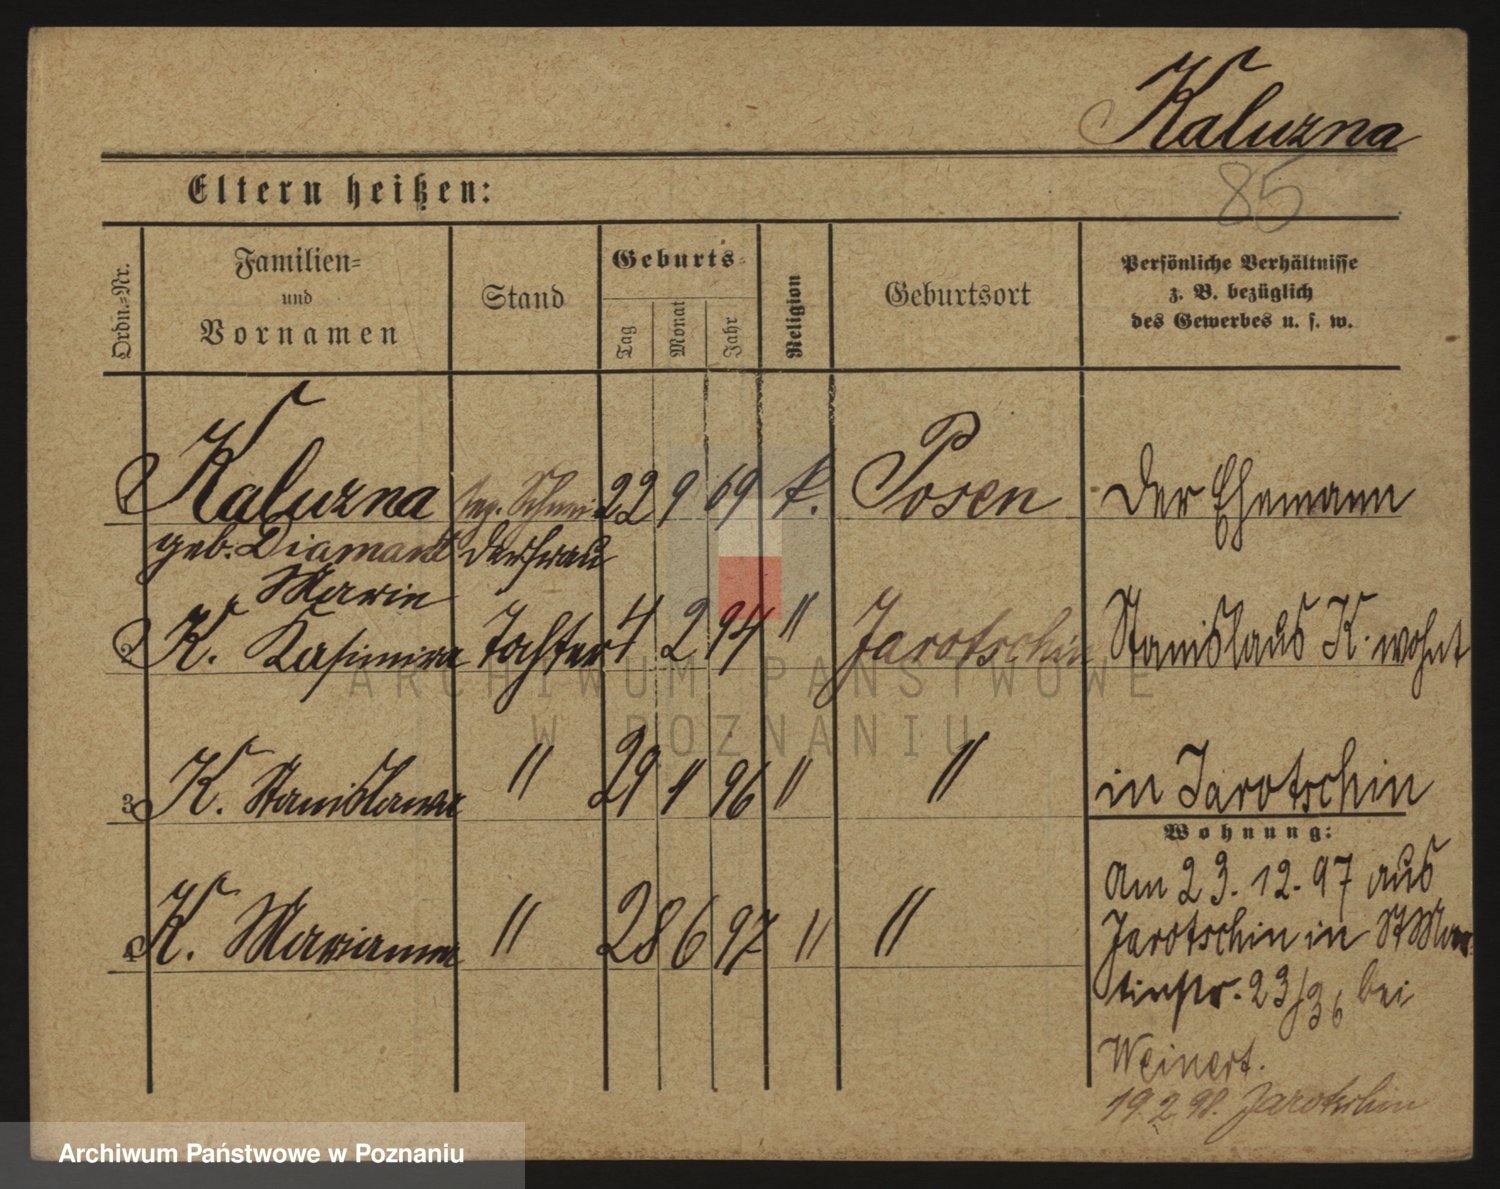 Kaluzna
85
Eltern heißen:
Ordn.=Nr.
Familien=
und
Vornamen
Stand
Geburts=
Tag
Monat
Jahr
Religion
Geburtsort
Persönliche Verhältnisse
z. B. bezüglich
des Gewerbes u. s. w.
1 Kaluzna Schnei 22 9 69 k. Posen Der Ehemann
geb. Diamant derfrau
Marie
2 K. Kasimira Tochter 4 2 94 " Jarotschin Stanislaus K. wohnt
3 K. Stanislawa " 29 1 96 " " in Jarotschin
Wohnung:
4 K. Marianna " 28 6 97 " " Am 23.12.97 aus
Jarotschin in St Mar
tinstr. 23/36 bei
Weinert.
19.2.98. Jarotschin
ARCHIWUM PAŃSTWOWE
W POZNANIU
Archiwum Państwowe w Poznaniu